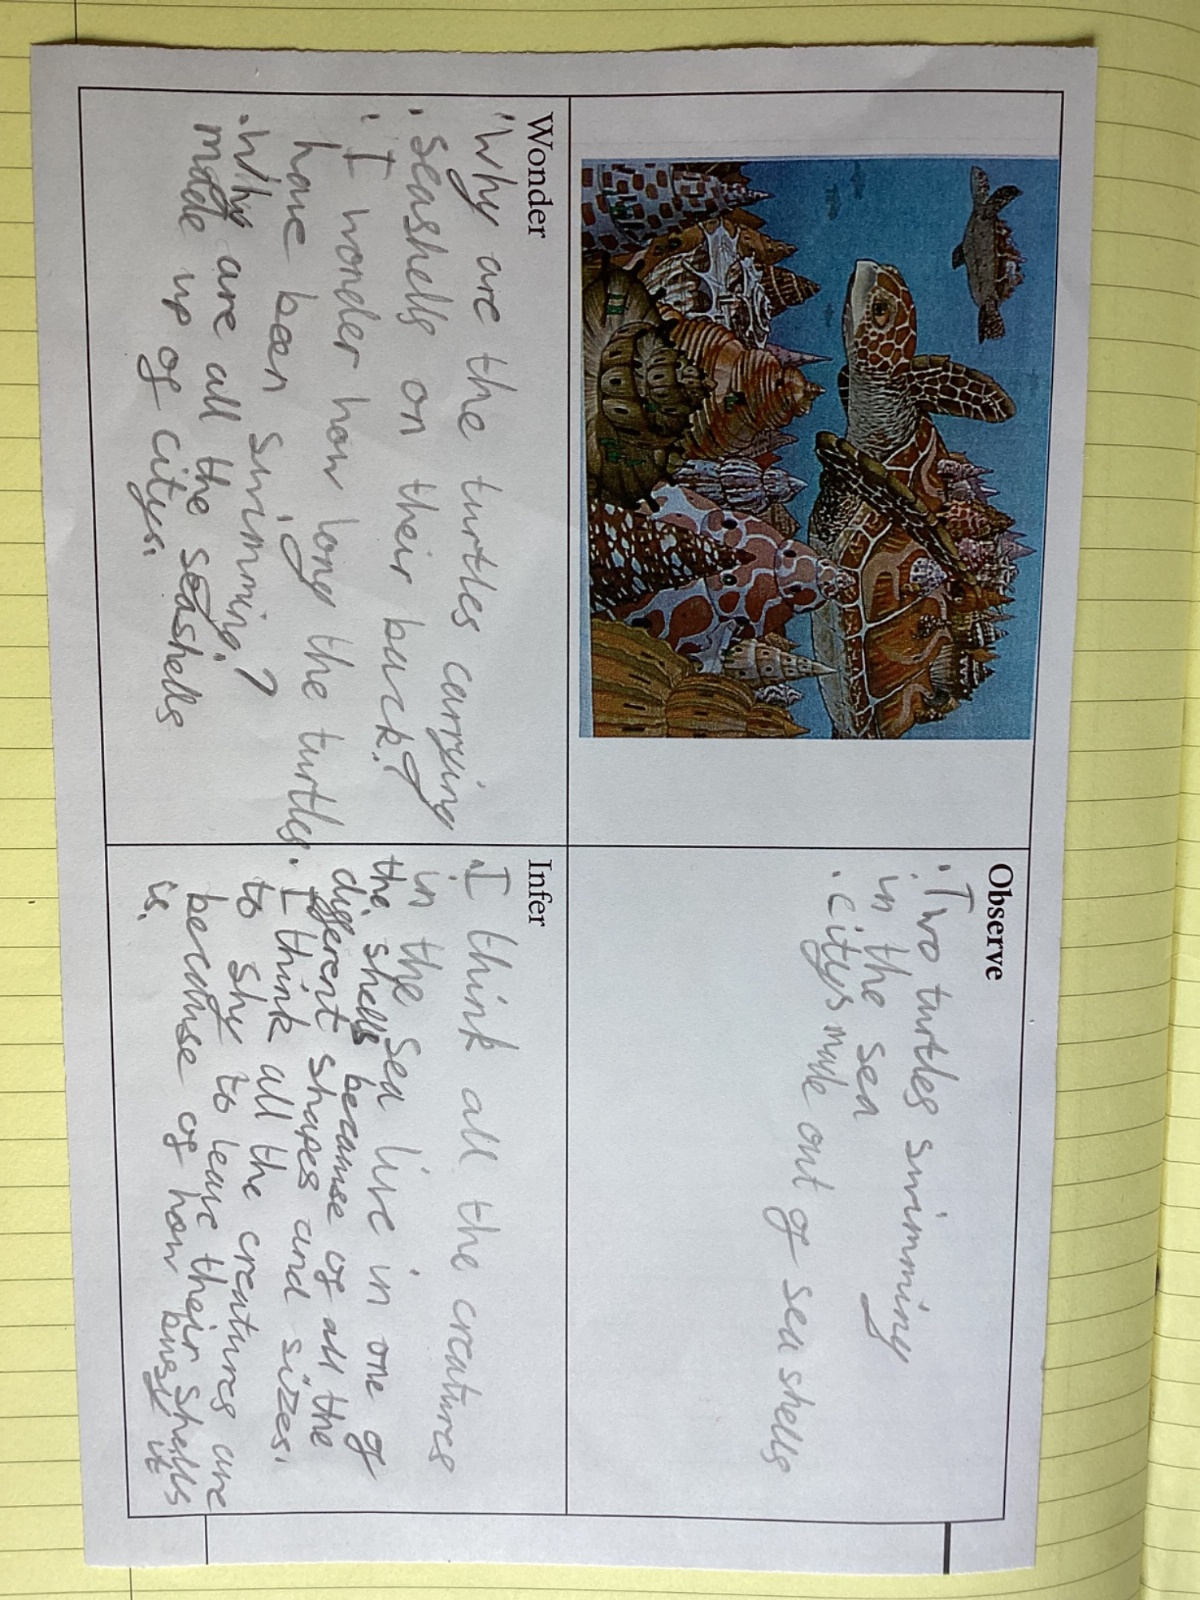 Observe
· Two turtles swimming
in the sea
· citys made out of sea shells
Wonder
· Why are the turtles carrying
· seashells on their back?
· I wonder how long the turtles
have been swimming?
· Why are all the seashells
made up of citys.
Infer
· I think all the creatures
in the sea live in one of
the shells because of all the
different shapes and sizes.
· I think all the creatures are
to shy to leave their shells
because of how busy it
is.